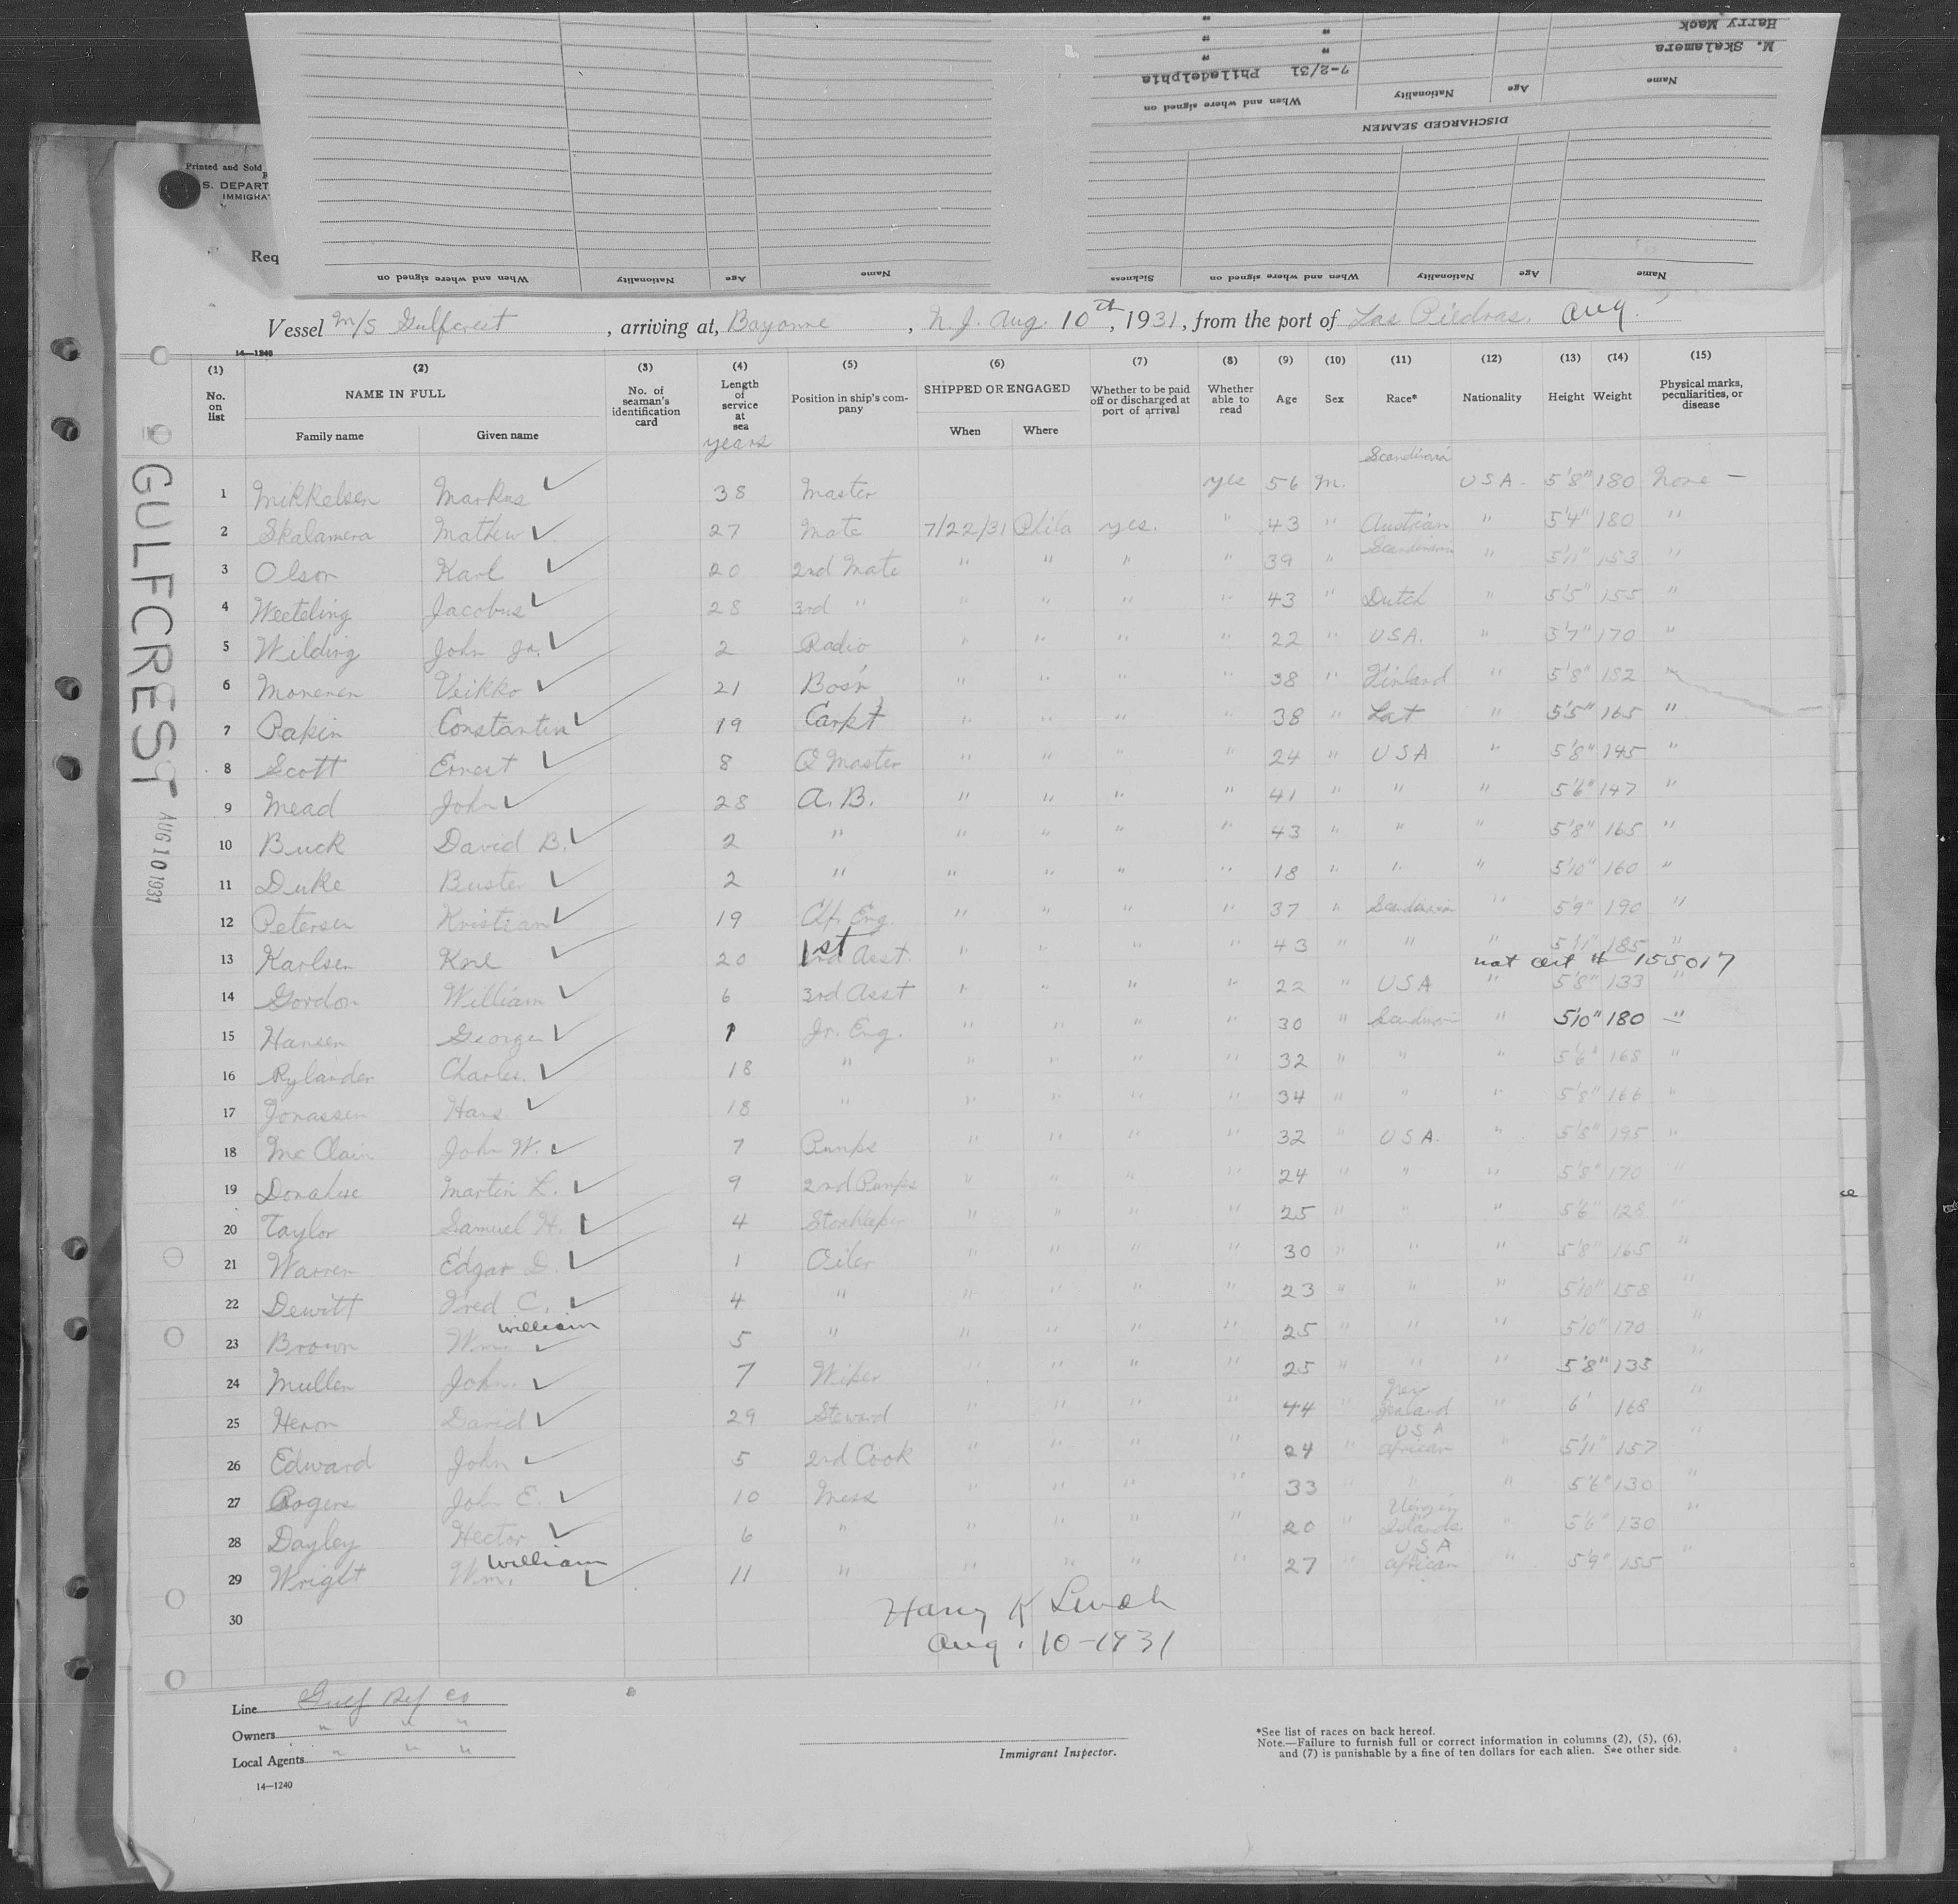 Harry Mack
M. Skalamera
7-2/31 Philadelphia
" "
" "
Name Age Nationality When and where signed on
DISCHARGED SEAMEN
Name Age Nationality When and where signed on Sickness
Name Age Nationality When and where signed on
Printed and Sold
S. DEPART
IMMIGRA
Req
Vessel M/S Gulfcrest, arriving at, Bayonne, N.J. Aug. 10th, 1931, from the port of Las Piedras. Aug
14—1240
(1) (2) (3) (4) (5) (6) (7) (8) (9) (10) (11) (12) (13) (14) (15)
No. on list NAME IN FULL No. of seaman's identification card Length of service at sea Position in ship's company SHIPPED OR ENGAGED Whether to be paid off or discharged at port of arrival Whether able to read Age Sex Race* Nationality Height Weight Physical marks, peculiarities, or disease
Family name Given name years When Where
1 Mikkelsen Markus 38 Master yes 56 M. Scandinavia USA. 5'8" 180 None —
2 Skalamera Mathew 27 Mate 7/22/31 Phila yes. " 43 " Austrian " 5'4" 180 "
3 Olson Karl 20 2nd Mate " " " " 39 " Scandinavia " 5'11" 153 "
4 Weeteling Jacobus 28 3rd " " " " " 43 " Dutch " 5'5" 155 "
5 Wilding John Jr. 2 Radio " " " " 22 " USA. " 5'7" 170 "
6 Monenen Veikko 21 Bos'n " " " " 38 " Finland " 5'8" 182 "
7 Pakin Constantin 19 Carpt " " " " 38 " Lat " 5'5" 165 "
8 Scott Ernest 8 Q Master " " " " 24 " USA " 5'8" 145 "
9 Mead John 28 A.B. " " " " 41 " " " 5'6" 147 "
10 Buck David B. 2 " " " " " 43 " " " 5'8" 165 "
11 Duke Buster 2 " " " " " 18 " " " 5'10" 160 "
12 Petersen Kristian 19 Ch. Eng. " " " " 37 " Scandinavia " 5'9" 190 "
13 Karlsen Kne 20 1st Asst. " " " " 43 " " " 5'11" 185 "
nat cert # 155017
14 Gordon William 6 3rd Asst " " " " 22 " USA " 5'8" 133 "
15 Hansen George 1 Jr. Eng. " " " " 30 " Scandinavia " 5'10" 180 "
16 Rylander Charles. 18 " " " " " 32 " " " 5'6" 168 "
17 Jonassen Hans 18 " " " " " 34 " " " 5'8" 166 "
18 Mc Clain John W. 7 Pumps " " " " 32 " USA. " 5'8" 195 "
19 Donahue Martin L. 9 2nd Pumps " " " " 24 " " " 5'8" 170 "
20 Taylor Samuel H. 4 Storekeeper " " " " 25 " " " 5'6" 128 "
21 Warren Edgar D. 1 Oiler " " " " 30 " " " 5'8" 165 "
22 Dewitt Fred C. 4 " " " " " 23 " " " 5'10" 158 "
23 Brown Wm. William 5 " " " " " 25 " " " 5'10" 170 "
24 Mullen John. 7 Wiper " " " " 25 " " " 5'8" 135 "
25 Heron David 29 Steward " " " " 44 " New Zealand " 6' 168 "
26 Edward John 5 2nd Cook " " " " 24 " USA African 5'11" 157 "
27 Rogers John E. 10 Mess " " " " 33 " " " 5'6" 130 "
28 Dayley Hector 6 " " " " " 20 " Virgin Islands " 5'6" 130 "
29 Wright Wm. William 11 " " " " " 27 " USA African " 5'9" 155 "
30
Harry K Lunch
Aug. 10-1931
GULFCREST
AUG 10 1931
Line Gulf Ref Co
Owners " " "
Local Agents " " "
14—1240
Immigrant Inspector.
*See list of races on back hereof.
Note.—Failure to furnish full or correct information in columns (2), (5), (6), and (7) is punishable by a fine of ten dollars for each alien. See other side.